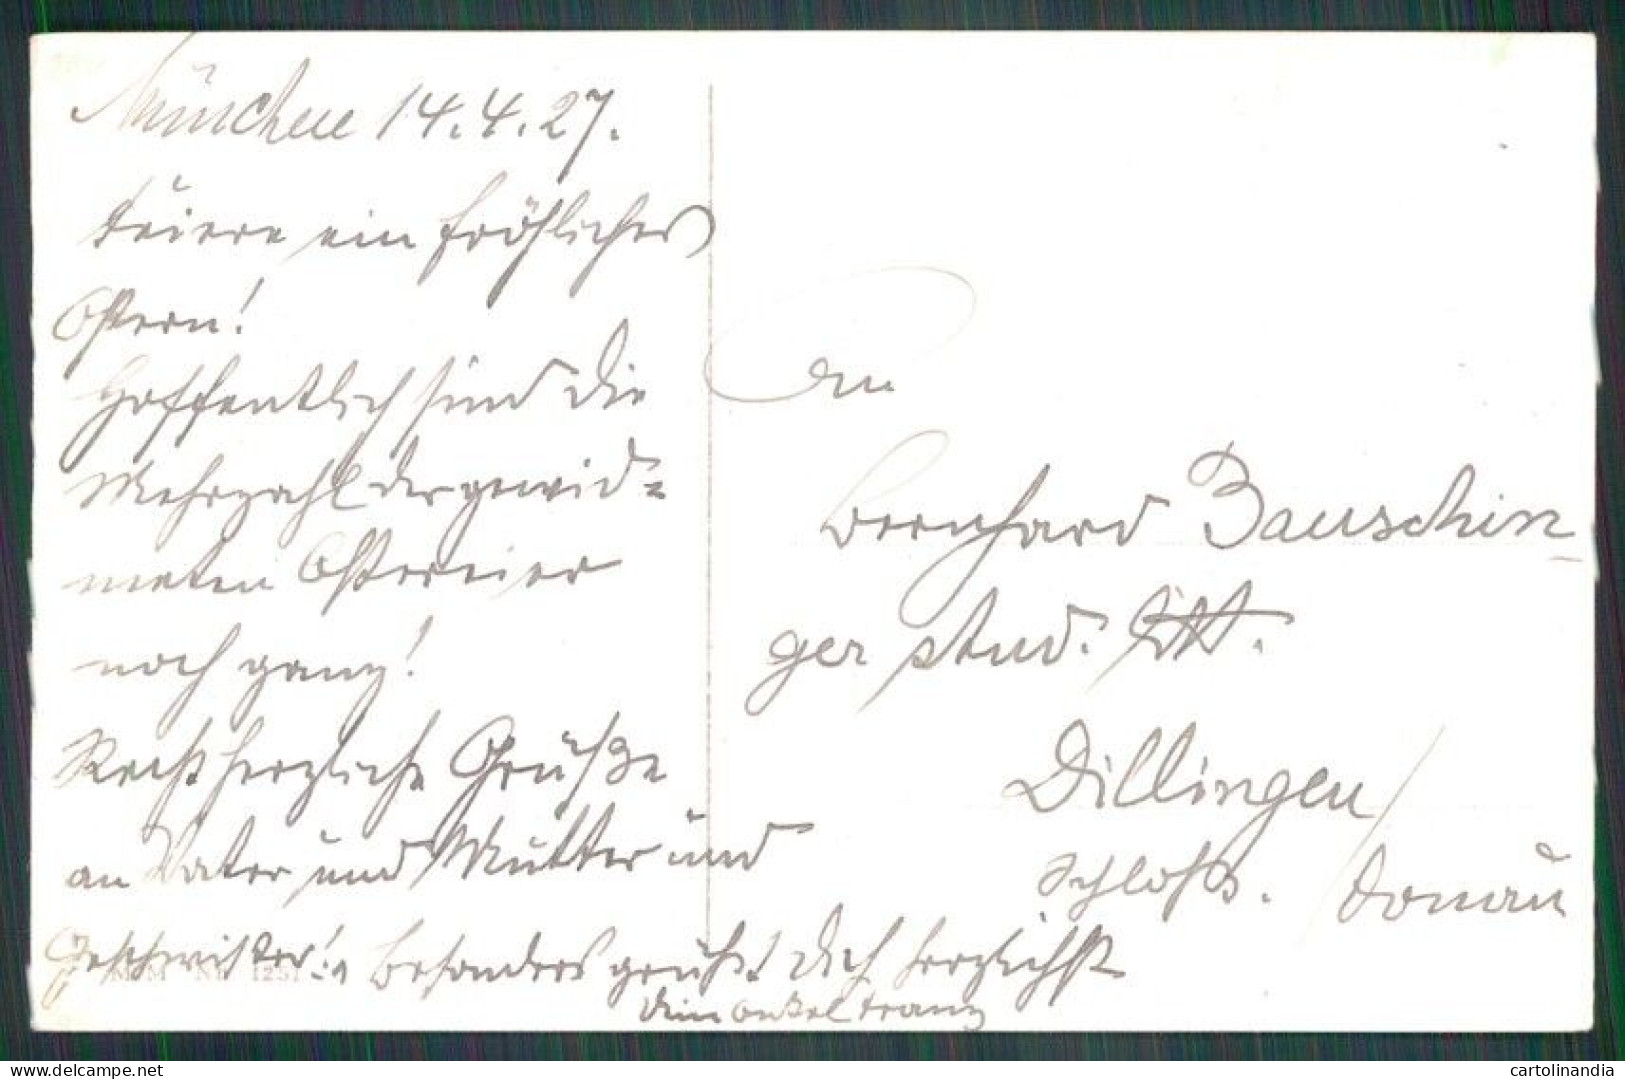 München 14.4.27.
Feiere ein fröhliches
Ostern!
Hoffentlich sind die
Mehrzahl der gewid=
meten Ostereier
noch ganz!
Recht herzliche Grüße
an Vater und Mutter und
Geschwister! besonders grüßt Dich herzlichst
Dein Onkel Franz
M&M Nr. 1251
An
Bernhard Bauschin-
ger stud.
Dillingen/
Schloß. Donau
www.delcampe.net
cartolinandia